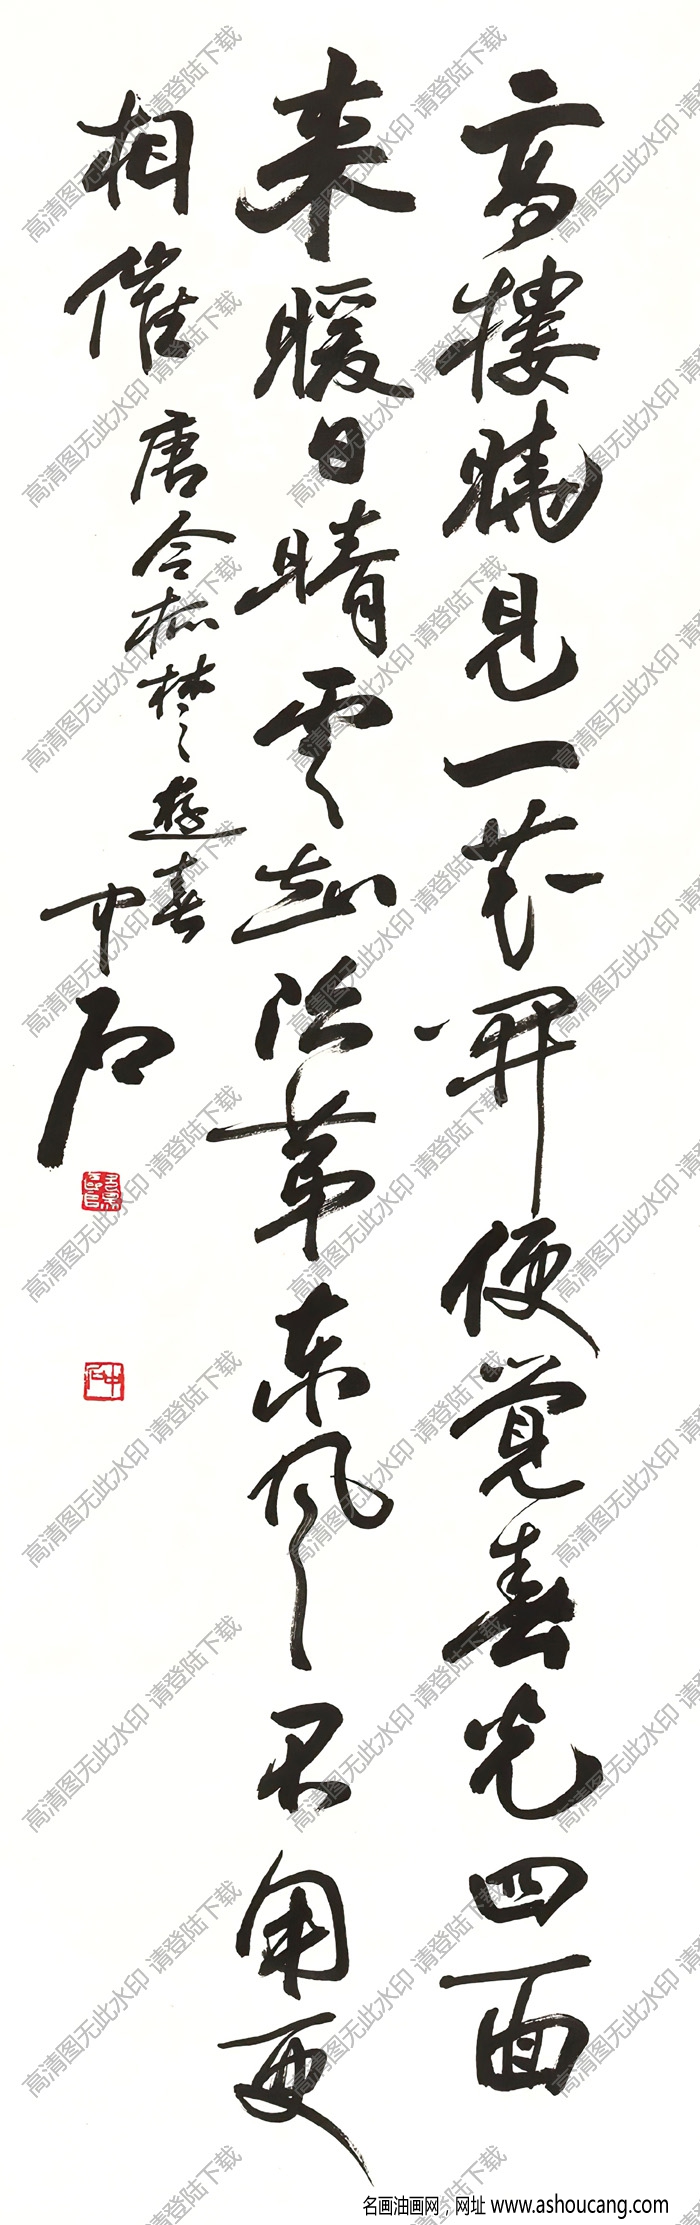 高樓曉見一花開便覺春光四面
来暖日晴雲知次第东风不用更
相催 唐令狐楚遊春 中石
中石
高清图无此水印 请登陆下载
名画油画网，网址 www.ashoucang.com